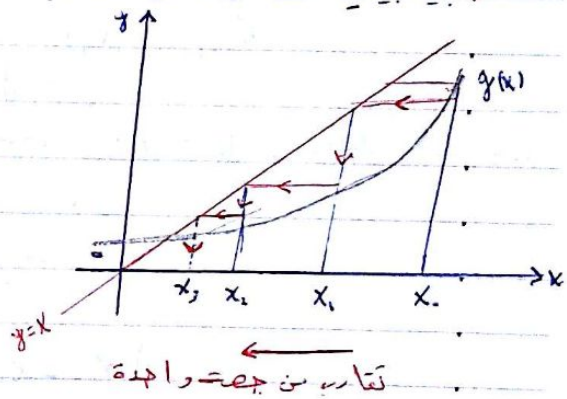 y
g(x)
x₃ x₂ x₁ x₀ x
y=x
تقارب من جهة واحدة